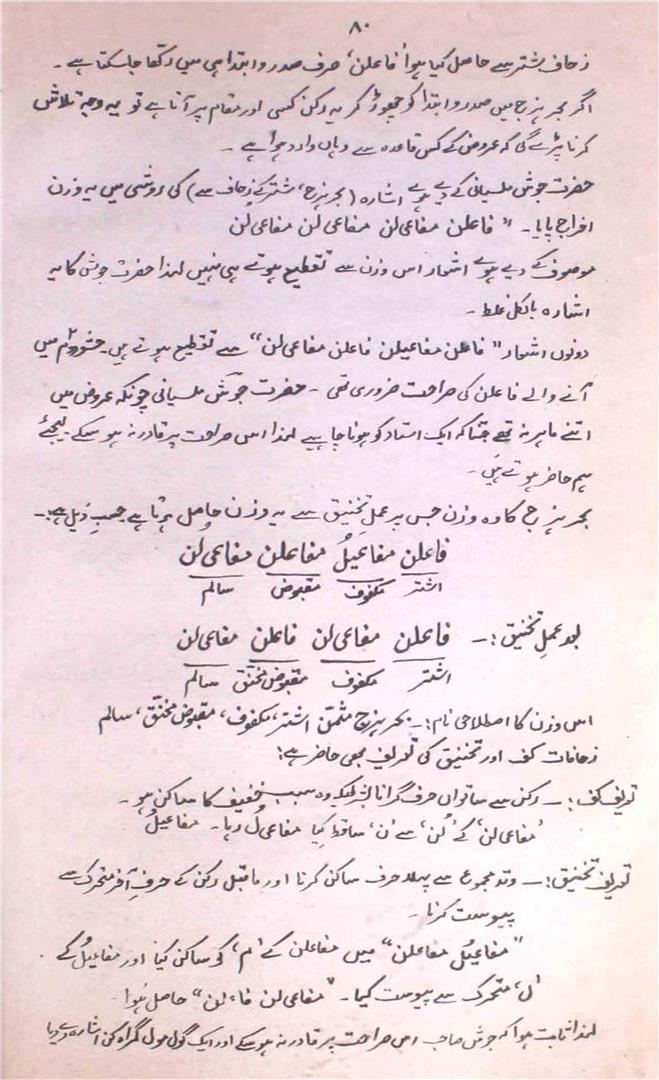 ۸۰
زحاف شتر سے حاصل کیا ہوا 'فاعلن' صرف صدر و ابتدا ہی میں رکھا جا سکتا ہے۔
اگر بحر ہزج میں صدر و ابتدا کو چھوڑ کر یہ رکن کسی اور مقام پر آتا ہے تو یہ وجہ تلاش
کرنا پڑے گی کہ عروض کے کس قاعدہ سے وہاں وارد ہوا ہے۔
حضرت جوش ملسیانی کے دیے ہوے اشارہ (بحر ہزج، شتر کے زحاف سے) کی روشنی میں یہ وزن
افراج پایا۔ " فاعلن مفاعی لن مفاعی لن مفاعی لن
موصوف کے دیے ہوے اشعار اس وزن سے تقطیع ہوتے ہی نہیں لہٰذا حضرت جوش کا یہ
اشارہ بالکل غلط۔
دونوں اشعار "فاعلن مفاعیلن فاعلن مفاعی لن" سے تقطیع ہوتے ہیں۔ حشو دوم میں
آنے والے فاعلن کی صراحت ضروری تھی۔ حضرت جوش ملسیانی چونکہ عروض میں
اتنے ماہر نہ تھے جتنا کہ ایک استاد کو ہونا چاہیے لہٰذا اس صراحت پر قادر نہ ہو سکے۔ لیجئے
ہم حاضر ہوتے ہیں۔
بحر ہزج کا وہ وزن جس پر عمل تخنیق سے یہ وزن حاصل ہوتا ہے حسبِ ذیل ہے:۔
فاعلن مفاعیلُ مفاعلن مفاعی لن
اشتر مکفوف مقبوض سالم
بعد عملِ تخنیق:۔ فاعلن مفاعی لن فاعلن مفاعی لن
اشتر مکفوف مقبوض مخنق سالم
اس وزن کا اصطلاحی نام:۔ بحر ہزج مثمن اشتر، مکفوف، مقبوض مخنّق، سالم
زحافات کف اور تخنیق کی تعریف بھی حاضر ہے:
تعریف کف:۔ رکن سے ساتواں حرف گرانا بشرطیکہ وہ سبب خفیف کا ساکن ہو۔
'مفاعی لن' کے 'لن' سے 'ن' ساقط کیا مفاعی لُ رہا۔ مفاعیلُ
تعریف تخنیق:۔ وتد مجموع سے پہلا حرف ساکن کرنا اور ماقبل رکن کے حرفِ آخر متحرک سے
پیوست کرنا۔
"مفاعیلُ مفاعلن" میں مفاعلن کے 'م' کو ساکن کیا اور مفاعیلُ کے
'ل' متحرک سے پیوست کیا۔ "مفاعی لن فاعلن" حاصل ہوا۔
لہٰذا ثابت ہوا کہ جوش صاحب اس صراحت پر قادر نہ ہو سکے اور ایک گول مول گمراہ کن اشارہ دے دیا